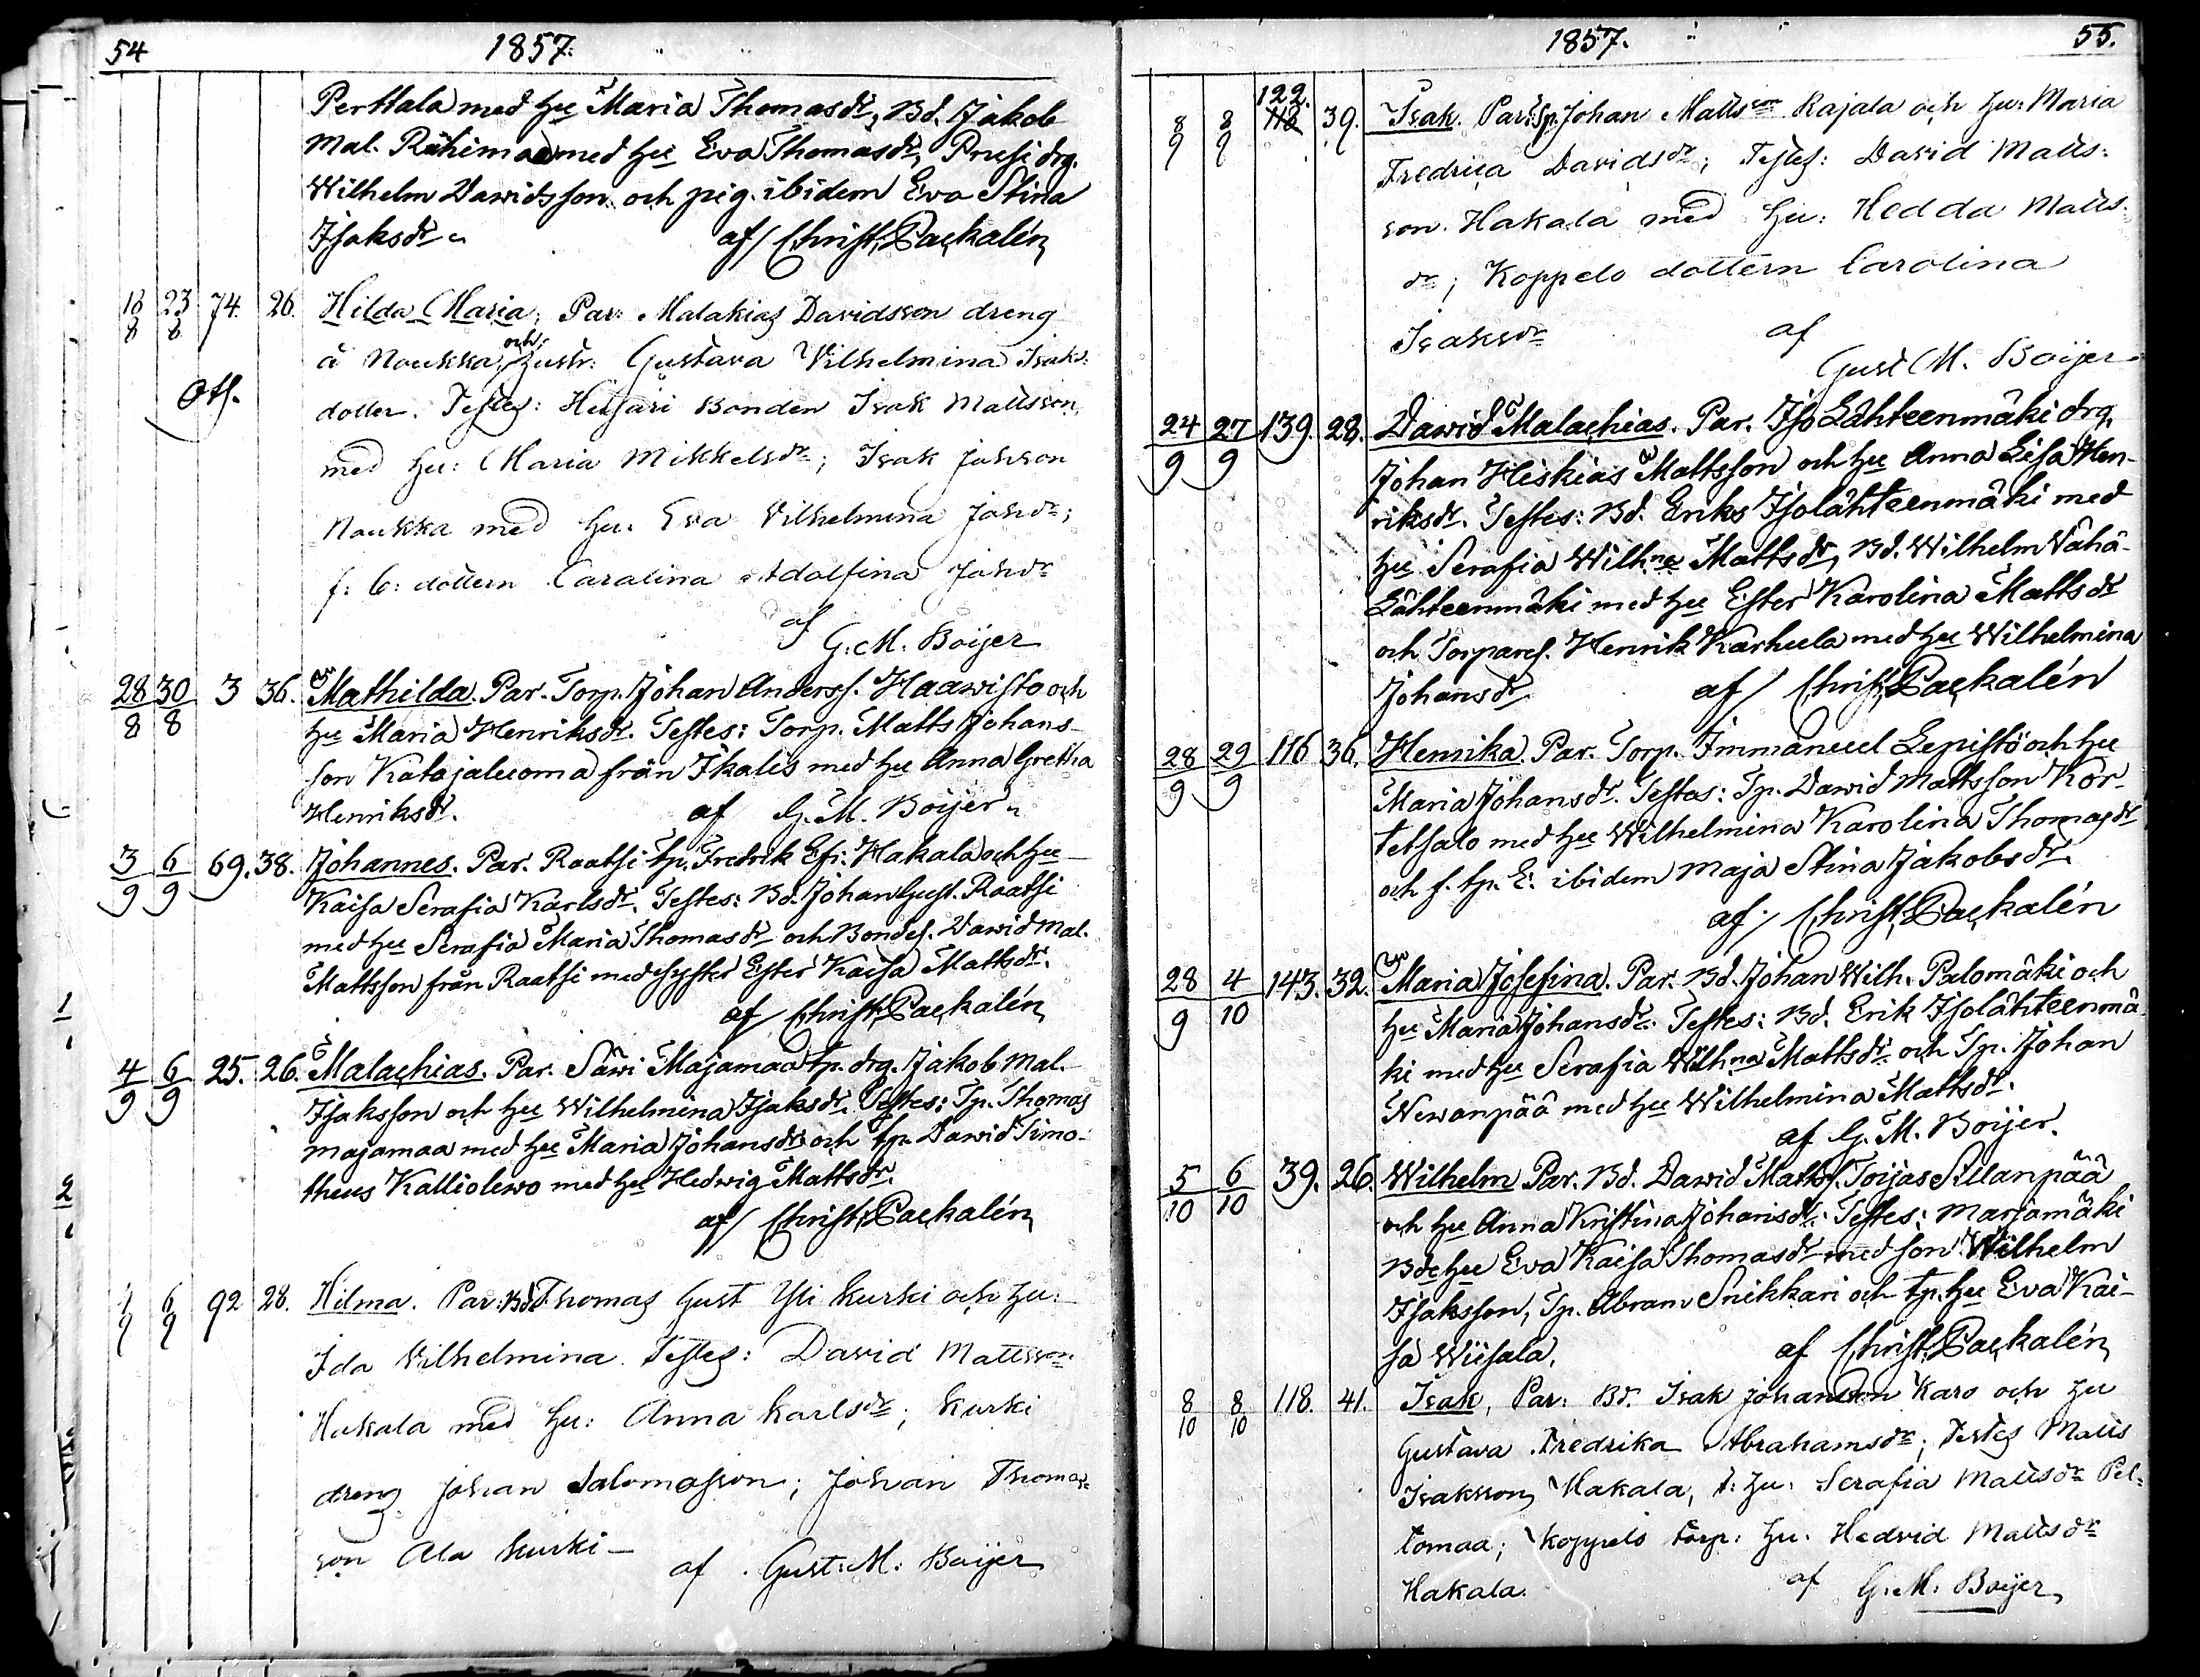 54 1857.
Perttala med hu Maria Thomasdr, Bd. Jakob
Mal. Rähimaa med hu Eva Thomasdr, Prusi drg.
Wilhelm Dawidsson och pig. ibidem Eva Stina
Isaksdr. af Christ. Packalén
18/8 23/8 74. 26. Hilda Maria; Par: Malakias Davidsson dreng
å Noukka, och hustr: Gustava Vilhelmina Isaks-
Oth. dotter. Testes: Heisari Bonden Isak Mattsson,
med hu: Maria Mikkelsdr; Isak Johsson
Noukka med hu: Eva Vilhelmina Johsdr;
f: b: dottern Carolina Adolfina Johsdr
af
G. M. Boijer
28/8 30/8 3 36. Mathilda. Par. Torp. Johan Anderss. Haawisto och
hu Maria Henriksdr. Testes: Torp. Matts Johans-
son Katajaluoma från Ikalis med hu Anna Gretha
Henriksdr. af G. M. Boijer
3/9 6/9 69. 38. Johannes. Par. Raatsi tp. Fredrik Efr: Hakala och hu
Kaisa Serafia Karlsdr. Testes: Bd. Johan Gust. Raatsi
med hu Serafia Maria Thomasdr och Bondes. Dawid Mal.
Mattsson från Raatsi med syster Ester Kaisa Mattsdr.
af Christ. Packalén
4/9 6/9 25. 26. Malachias. Par. Säwi Majamaa tp. drg. Jakob Mal.
Isaksson och hu Wilhelmina Isaksdr. Testes: Tp. Thomas
Majamaa med hu Maria Johansdr och tp. Dawid Timo-
theus Kalliolewo med hu Hedwig Mattsdr.
af Christ. Packalén
1/9 6/9 92 28. Hilma. Par: Bd Thomas Gust Yli Kurki och hu:
Ida Vilhelmina. Testes: David Mattsson
Hakala med hu: Anna Karlsdr; Kurki
dreng Johan Salomosson; Johan Thomas-
son Ala Kurki— af Gust: M: Boijer
1857. 55.
8/9 8/9 122. 118 39. Isak. Par: Tp. Johan Mattsson Rajala och hu: Maria
Fredrica Davidsdr; Testes: David Matts-
son Hakala med hu: Hedda Matts-
dr; Koppelo dottern Carolina
Isaksdr af
Gust M. Boijer
24/9 27/9 139. 28. Dawid Malachias. Par. Iso Lähteenmäki drg.
Johan Heskias Mattsson och hu Anna Lisa Hen-
riksdr. Testes: Bd. Eriks Isolähteenmäki med
hu Serafia Wilhna Mattsdr, Bd. Wilhelm Vähä-
Lähteenmäki med hu Ester Karolina Mattsdr
och Torpares. Henrik Karhula med hu Wilhelmina
Johansdr. af Christ. Packalén
28/9 29/9 116 36. Henrika. Par. Torp. Immanuel Lepistö och hu
Maria Johansdr. Testes: Tp. Dawid Mattsson Kor-
tetsalo med hu Wilhelmina Karolina Thomasdr
och f. tp. E. ibidem Maja Stina Jakobsdr.
af Christ. Packalén
28/9 4/10 143. 32. Maria Josefina. Par. Bd. Johan Wilh. Palomäki och
hu Maria Johansdr. Testes: Bd. Erik Isolähteenmä-
ki med hu Serafia Wilhna Mattsdr och Tp. Johan
Newanpää med hu Wilhelmina Mattsdr.
af G. M. Boijer.
5/10 6/10 39. 26. Wilhelm Par. Bd. Dawid Matts. Toijas Sillanpää
och hu Anna Kristina Johansdr. Testes: Marjamäki
Bde hu Eva Kaisa Thomasdr med son Wilhelm
Isaksson, Tp. Abram Snikkari och tp. hu Eva Kai-
sa Wiisala. af Christ. Packalén
8/10 8/10 118. 41. Isak, Par: Bd. Isak Johansson Karo och hu
Gustava Fredrika Abrahamsdr; Testes Matts
Isaksson Hakala, t: hu: Serafia Mattsdr Pel-
tomaa; Koppelo torp: hu: Hedvid Mattsdr
Hakala. af G. M: Boijer